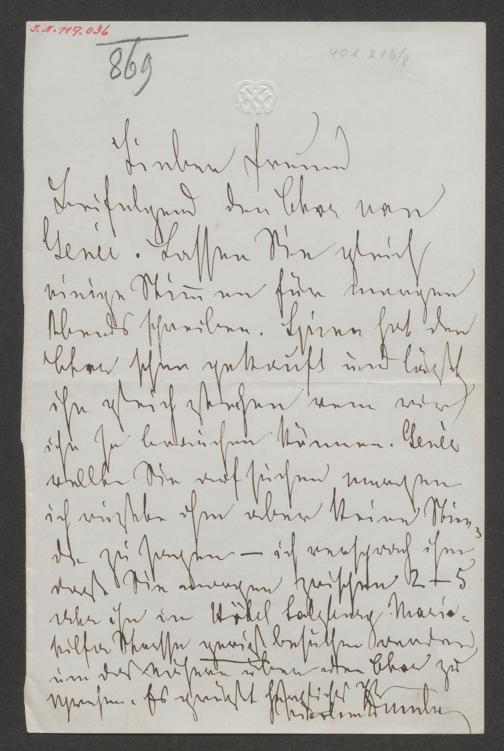 I.N. 119.036
869
401.216/2
Lieber Freund
Beifolgend den Chor von
Genée. Lassen Sie gleich
einige Stimmen für morgen
Abends schreiben. Spina hat den
Chor schon gekauft und läßt
ihn gleich stechen wenn wir
ihn so brauchen können. Genée
wollte Sie aufsuchen morgen
ich wußte ihm aber keine Stun-
de zu sagen – ich versprach ihm
daß Sie morgen zwischen 2–5
Uhr ihn in Hôtel Salzburg Maria-
hilfer Strasse gewiß besuchen werden
um das Nähere über den Chor zu
sprechen. Es grüßt herzlichst Ihr